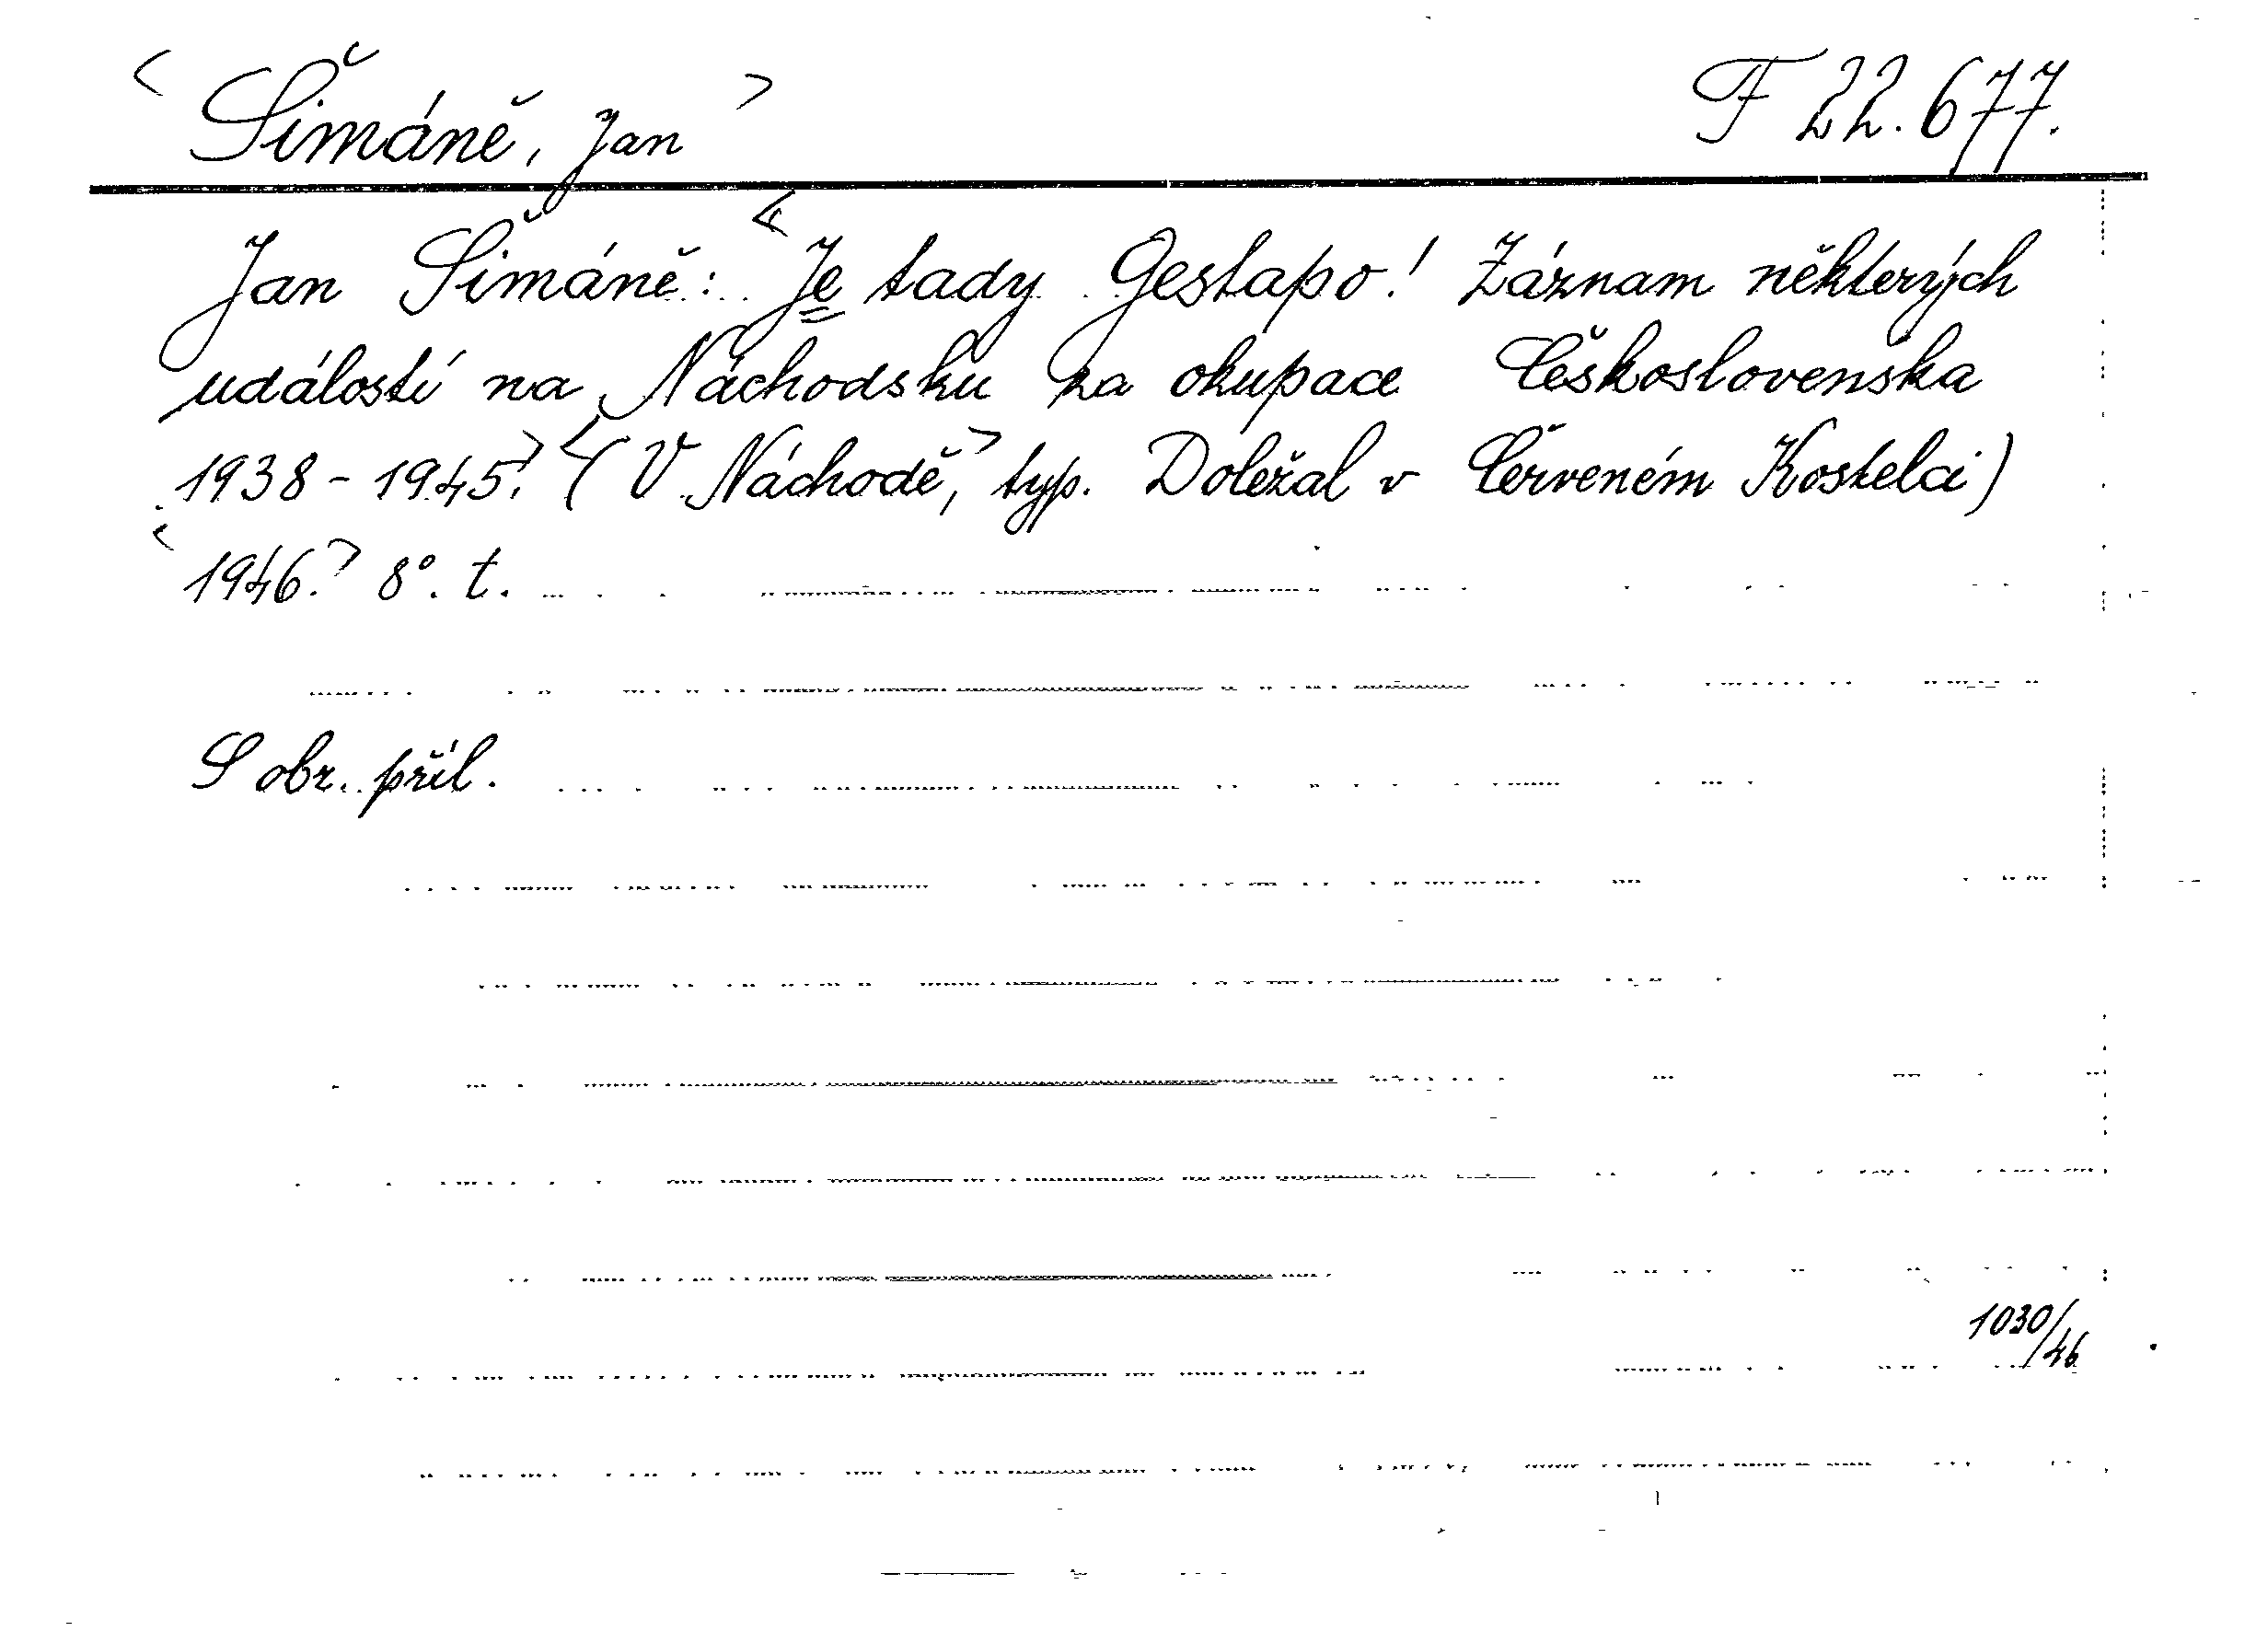 < Šimáně, Jan > F 22.677.
Jan Šimáně: < Je tady Gestapo! Záznam některých
událostí na Náchodsku za okupace Československa
1938 - 1945.> < (V Náchodě,> typ. Doležal v Červeném Kostelci)
< 1946.> 8°. t.
S obr. příl.
1030/46